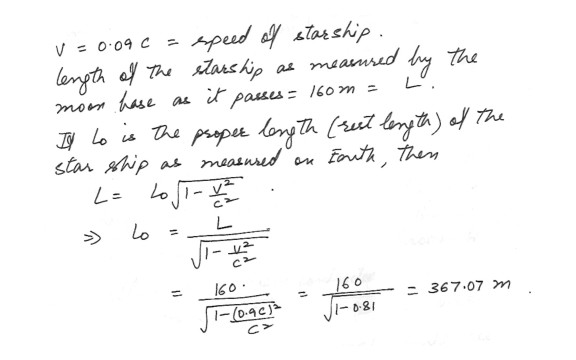 V = 0.09 C = speed of starship.
length of the starship as measured by the
moon base as it passes = 160 m = L.
If Lo is the proper length (rest length) of the
star ship as measured on Earth, then
L = Lo √(1 - V²/C²).
⇒ Lo = L / √(1 - V²/C²)
= 160. / √(1 - (0.9C)²/C²) = 160 / √(1 - 0.81) = 367.07 m.